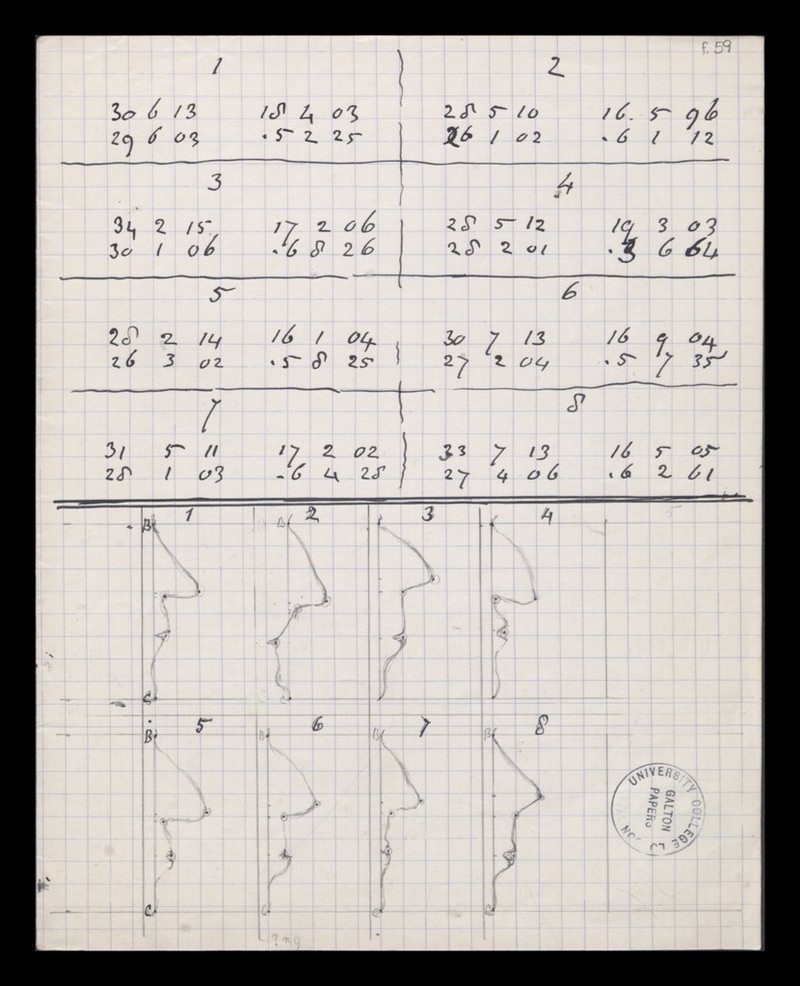 f. 59
1 2
30 6 13 18 4 03 28 5 10 16. 5 96
29 6 03 .5 2 25 26 1 02 .6 1 12
3 4
34 2 15 17 2 06 28 5 12 19 3 03
30 1 06 .6 8 26 28 2 01 .3 6 64
5 6
28 2 14 16 1 04 30 7 13 16 9 04
26 3 02 .5 8 25 27 2 04 .5 7 35
7 8
31 5 11 17 2 02 33 7 13 16 5 05
28 1 03 .6 4 28 27 4 06 .6 2 61
1 2 3 4 5
B B
C C
5 6 7 8
B B B B
C C C C
UNIVERSITY COLLEGE
GALTON
PAPERS